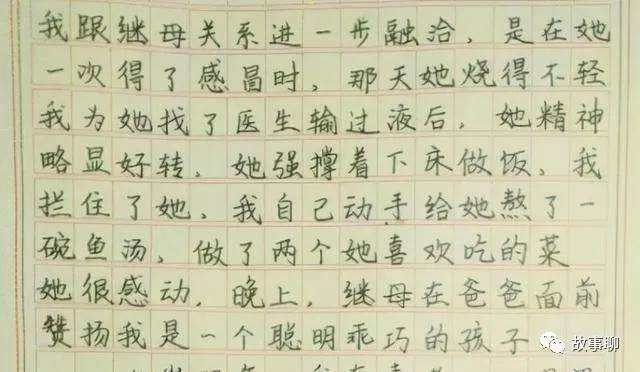 我跟继母关系进一步融洽，是在她
一次得了感冒时，那天她烧得不轻
我为她找了医生输过液后，她精神
略显好转，她强撑着下床做饭，我
拦住了她，我自己动手给她熬了一
碗鱼汤，做了两个她喜欢吃的菜
她很感动，晚上，继母在爸爸面前
赞扬我是一个聪明乖巧的孩子
故事聊